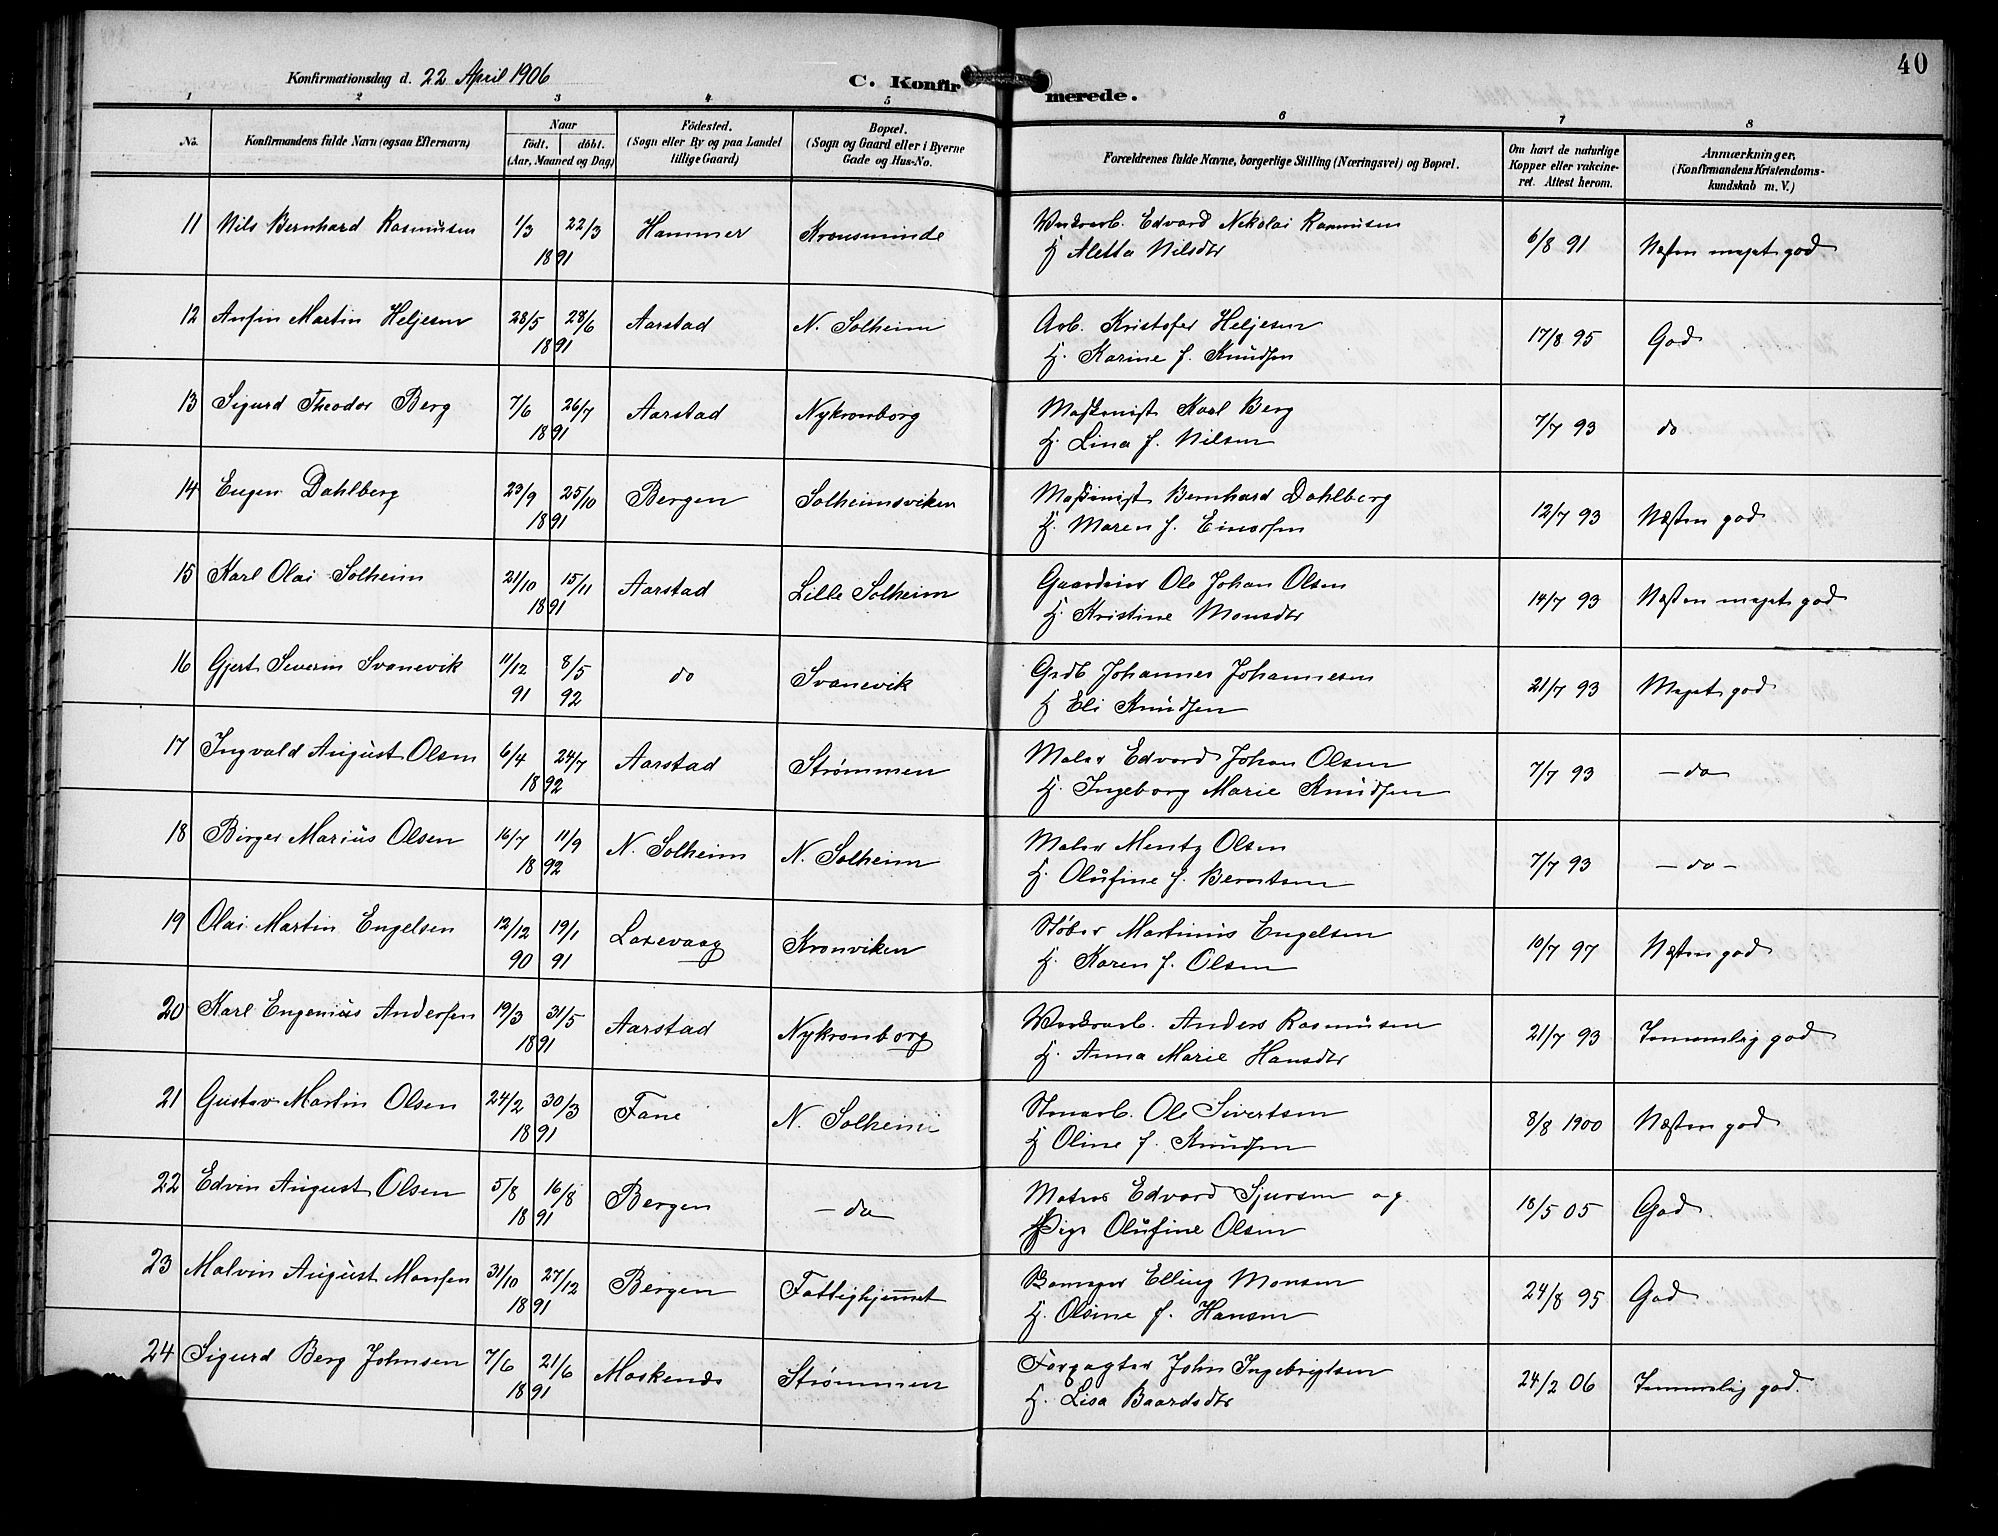 40
Konfirmationsdag d. 22 April 1906
C. Konfirmerede.
1 2 3 4 5 6 7 8
No. Konfirmandens fulde Navn (ogsaa Efternavn) Naar født. døbt. (Aar, Maaned og Dag) Fødested. (Sogn eller By og paa Landet tillige Gaard) Bopæl. (Sogn og Gaard eller i Byerne Gade og Hus-No. Forældrenes fulde Navne, borgerlige Stilling (Næringsvei) og Bopæl. Om havt de naturlige Kopper eller vakcineret. Attest herom. Anmærkninger. (Konfirmandens Kristendomskundskab m. V.)
11 Nils Bernhard Rasmüsen 1/3 22/3 1891 Hammer Kronsminde Verkarb. Edvard Nikolai Rasmüsen 6/8 91 Næsten meget god
H Aletta Nilsdtr
12 Anfin Martin Heljesen 28/5 28/6 1891 Aarstad N. Solheim Arb. Kristofer Heljesen 17/8 95 God
H. Karine f. Knüdsen
13 Sigurd Theodor Berg 7/6 26/7 1891 Aarstad Nykronborg Maskinist Karl Berg 7/7 93 do
H. Lina f. Nilsen
14 Eugen Dahlberg 23/9 25/10 1891 Bergen Solheimsviken Maskinist Bernhard Dahlberg 12/7 93 Næsten god
H. Maren f. Einarsen
15 Karl Olai Solheim 21/10 15/11 1891 Aarstad Lille Solheim Gaardeier Ole Johan Olsen 14/7 93 Næsten meget god
H. Kristine Monsdtr
16 Gjert Severin Svanevik 11/12 91 8/5 92 do Svanevik Grdb Johannes Johannesen 21/7 93 Meget god
H Eli Knüdsen
17 Ingvald Aügüst Olsen 6/4 24/7 1892 Aarstad Strømmen Maler Edvard Johan Olsen 7/7 93 – do
H. Ingeborg Marie Knüdsen
18 Birger Mariüs Olsen 16/7 11/9 1892 N. Solheim N. Solheim Maler Mentz Olsen 7/7 93 – do –
H. Olüfine f. Berntsen
19 Olai Martin Engelsen 12/12 90 19/1 91 Laxevaag Kronviken Støber Martinüs Engelsen 10/7 97 Næsten god
H. Karen f. Olsen
20 Karl Eugeniüs Andersen 19/3 31/5 1891 Aarstad Nykronborg Verkarb. Anders Rasmüsen 21/7 93 Temmelig god
H. Anna Marie Hansdtr
21 Gustav Martin Olsen 24/2 30/3 1891 Fane N. Solheim Stenarb. Ole Sivertsen 8/8 1900 Næsten god
H Oline f. Knüdsen
22 Edvin Aügüst Olsen 5/8 16/8 1891 Bergen – do Matros Edvard Sjursen og 18/5 05 God
Pige Olüfine Olsen
23 Malvin Aügüst Monsen 31/10 27/12 1891 Bergen Fattighjemmet Elling Monsen 24/8 95 God
H. Olsine f. Hansen
24 Sigurd Berg Johnsen 7/6 21/6 1891 Moskenes Strømmen Forpagter John Ingebrigtsen 24/2 06 Temmelig god.
H. Lisa Baardsdtr